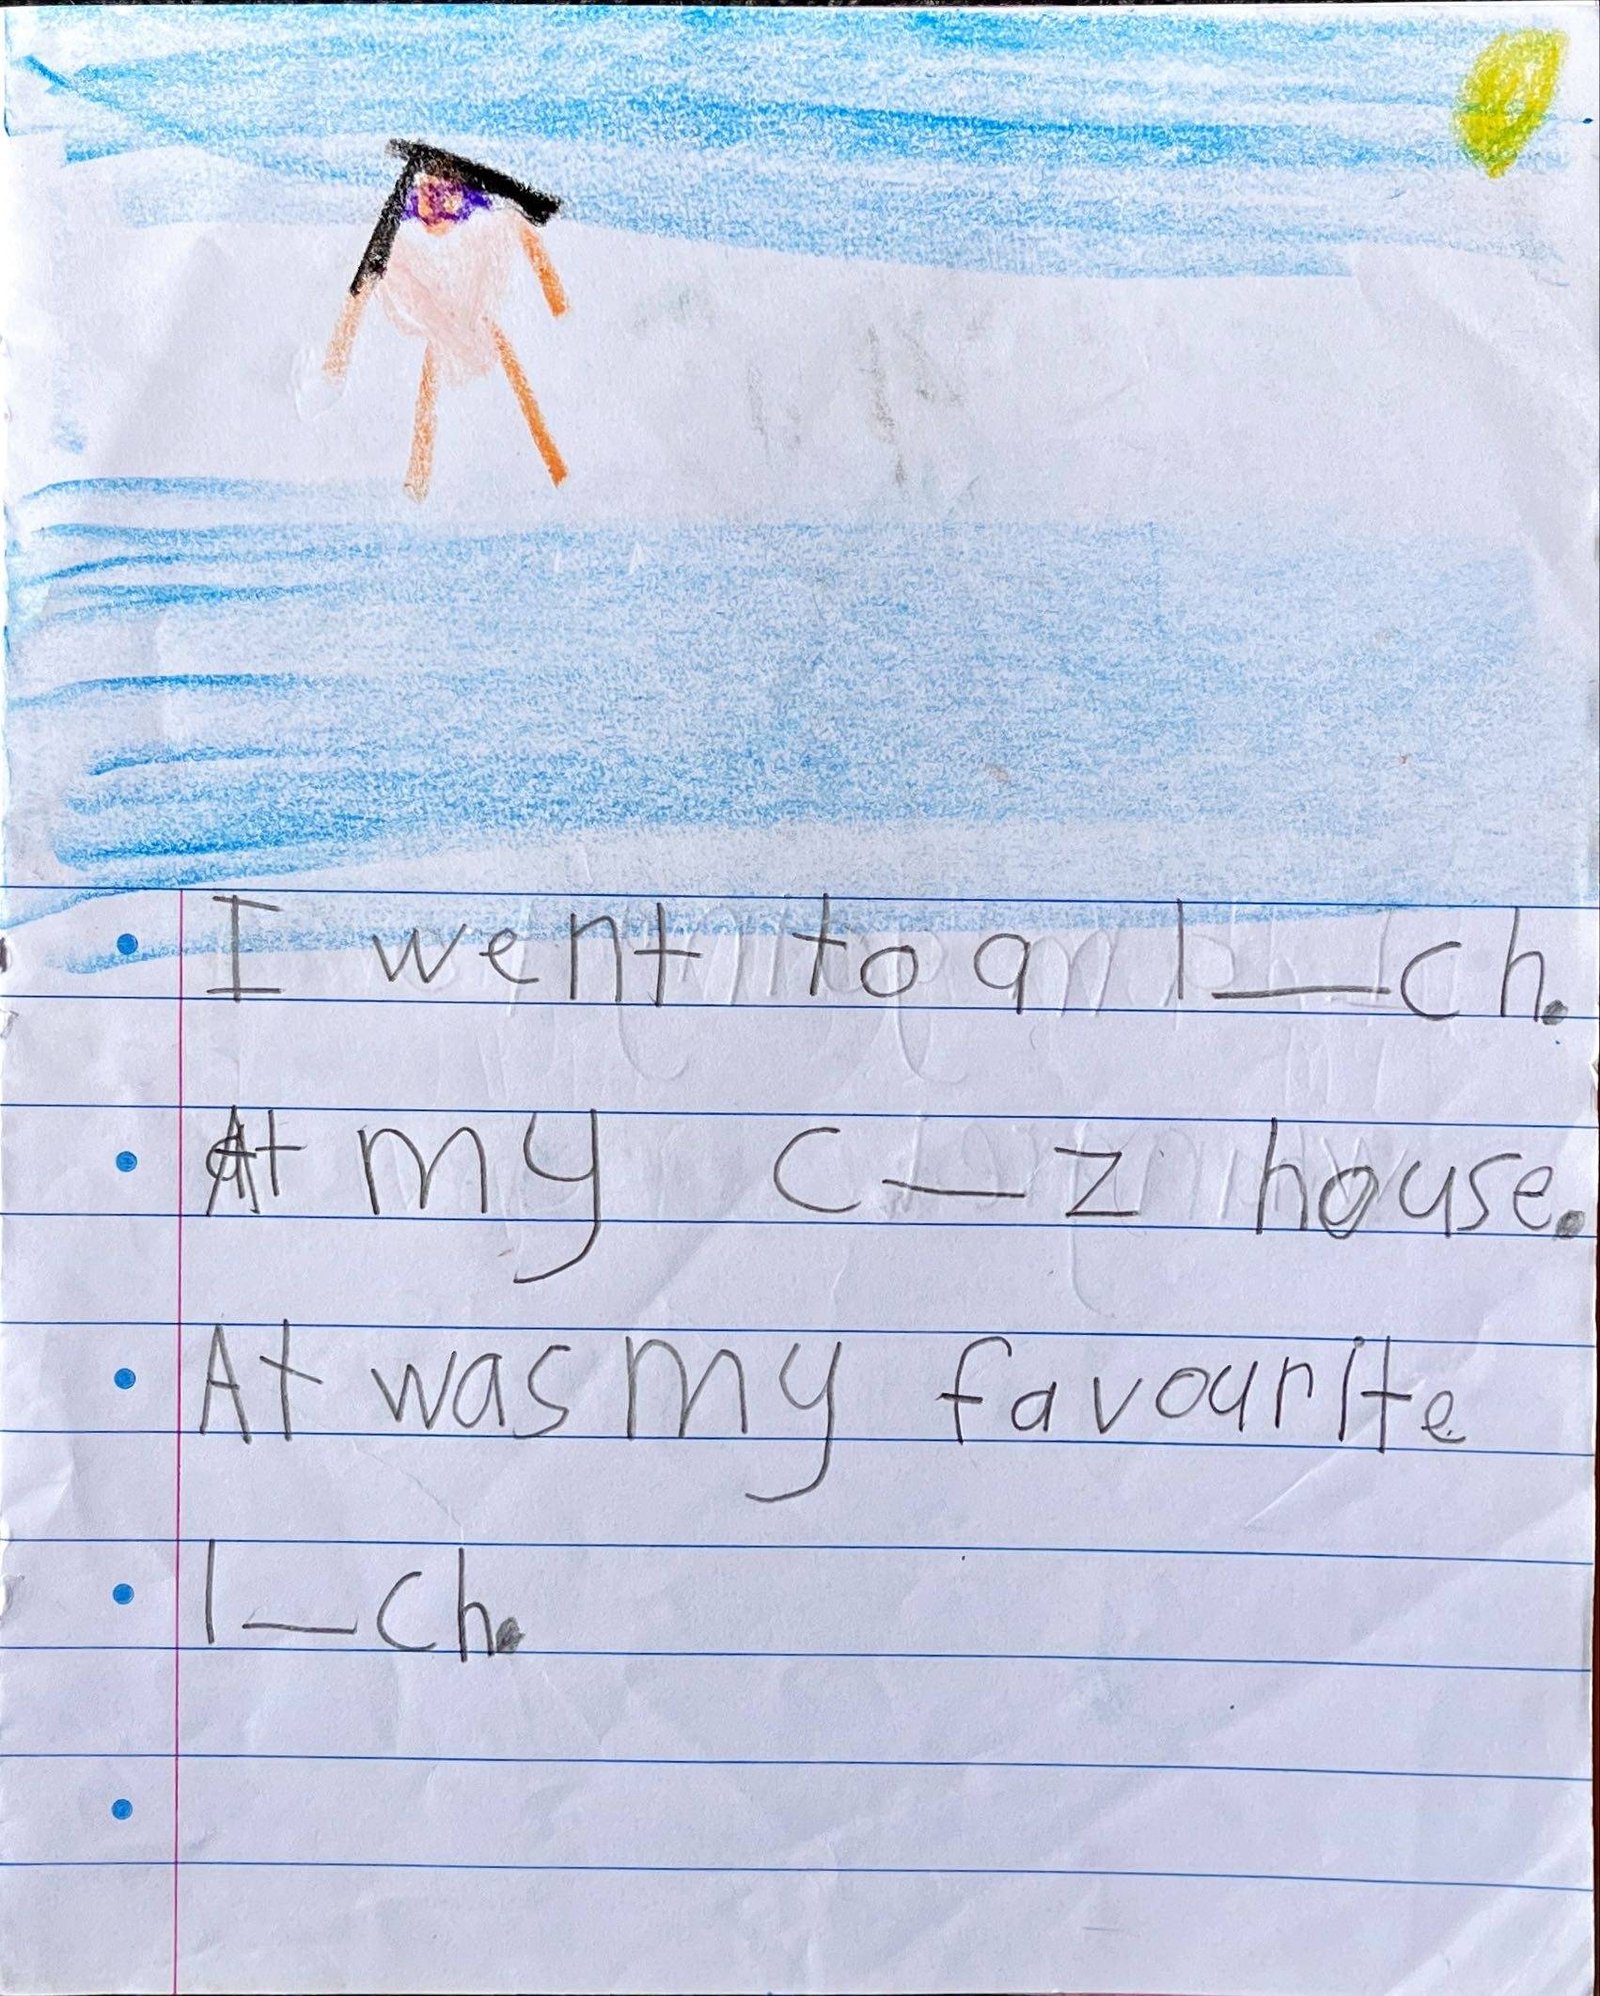 I went to a l__ch.
At my c__z house.
At was my favourite
l__ch.